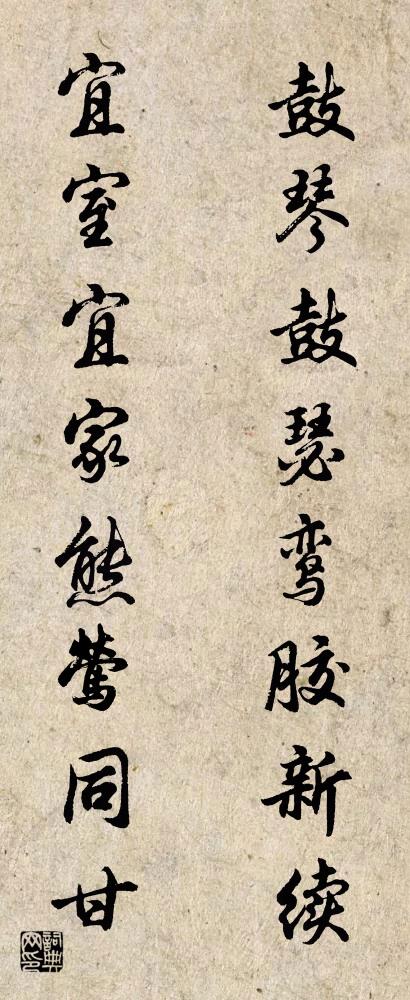 鼓琴鼓瑟鸾胶新续
宜室宜家熊莺同甘
詞典網印